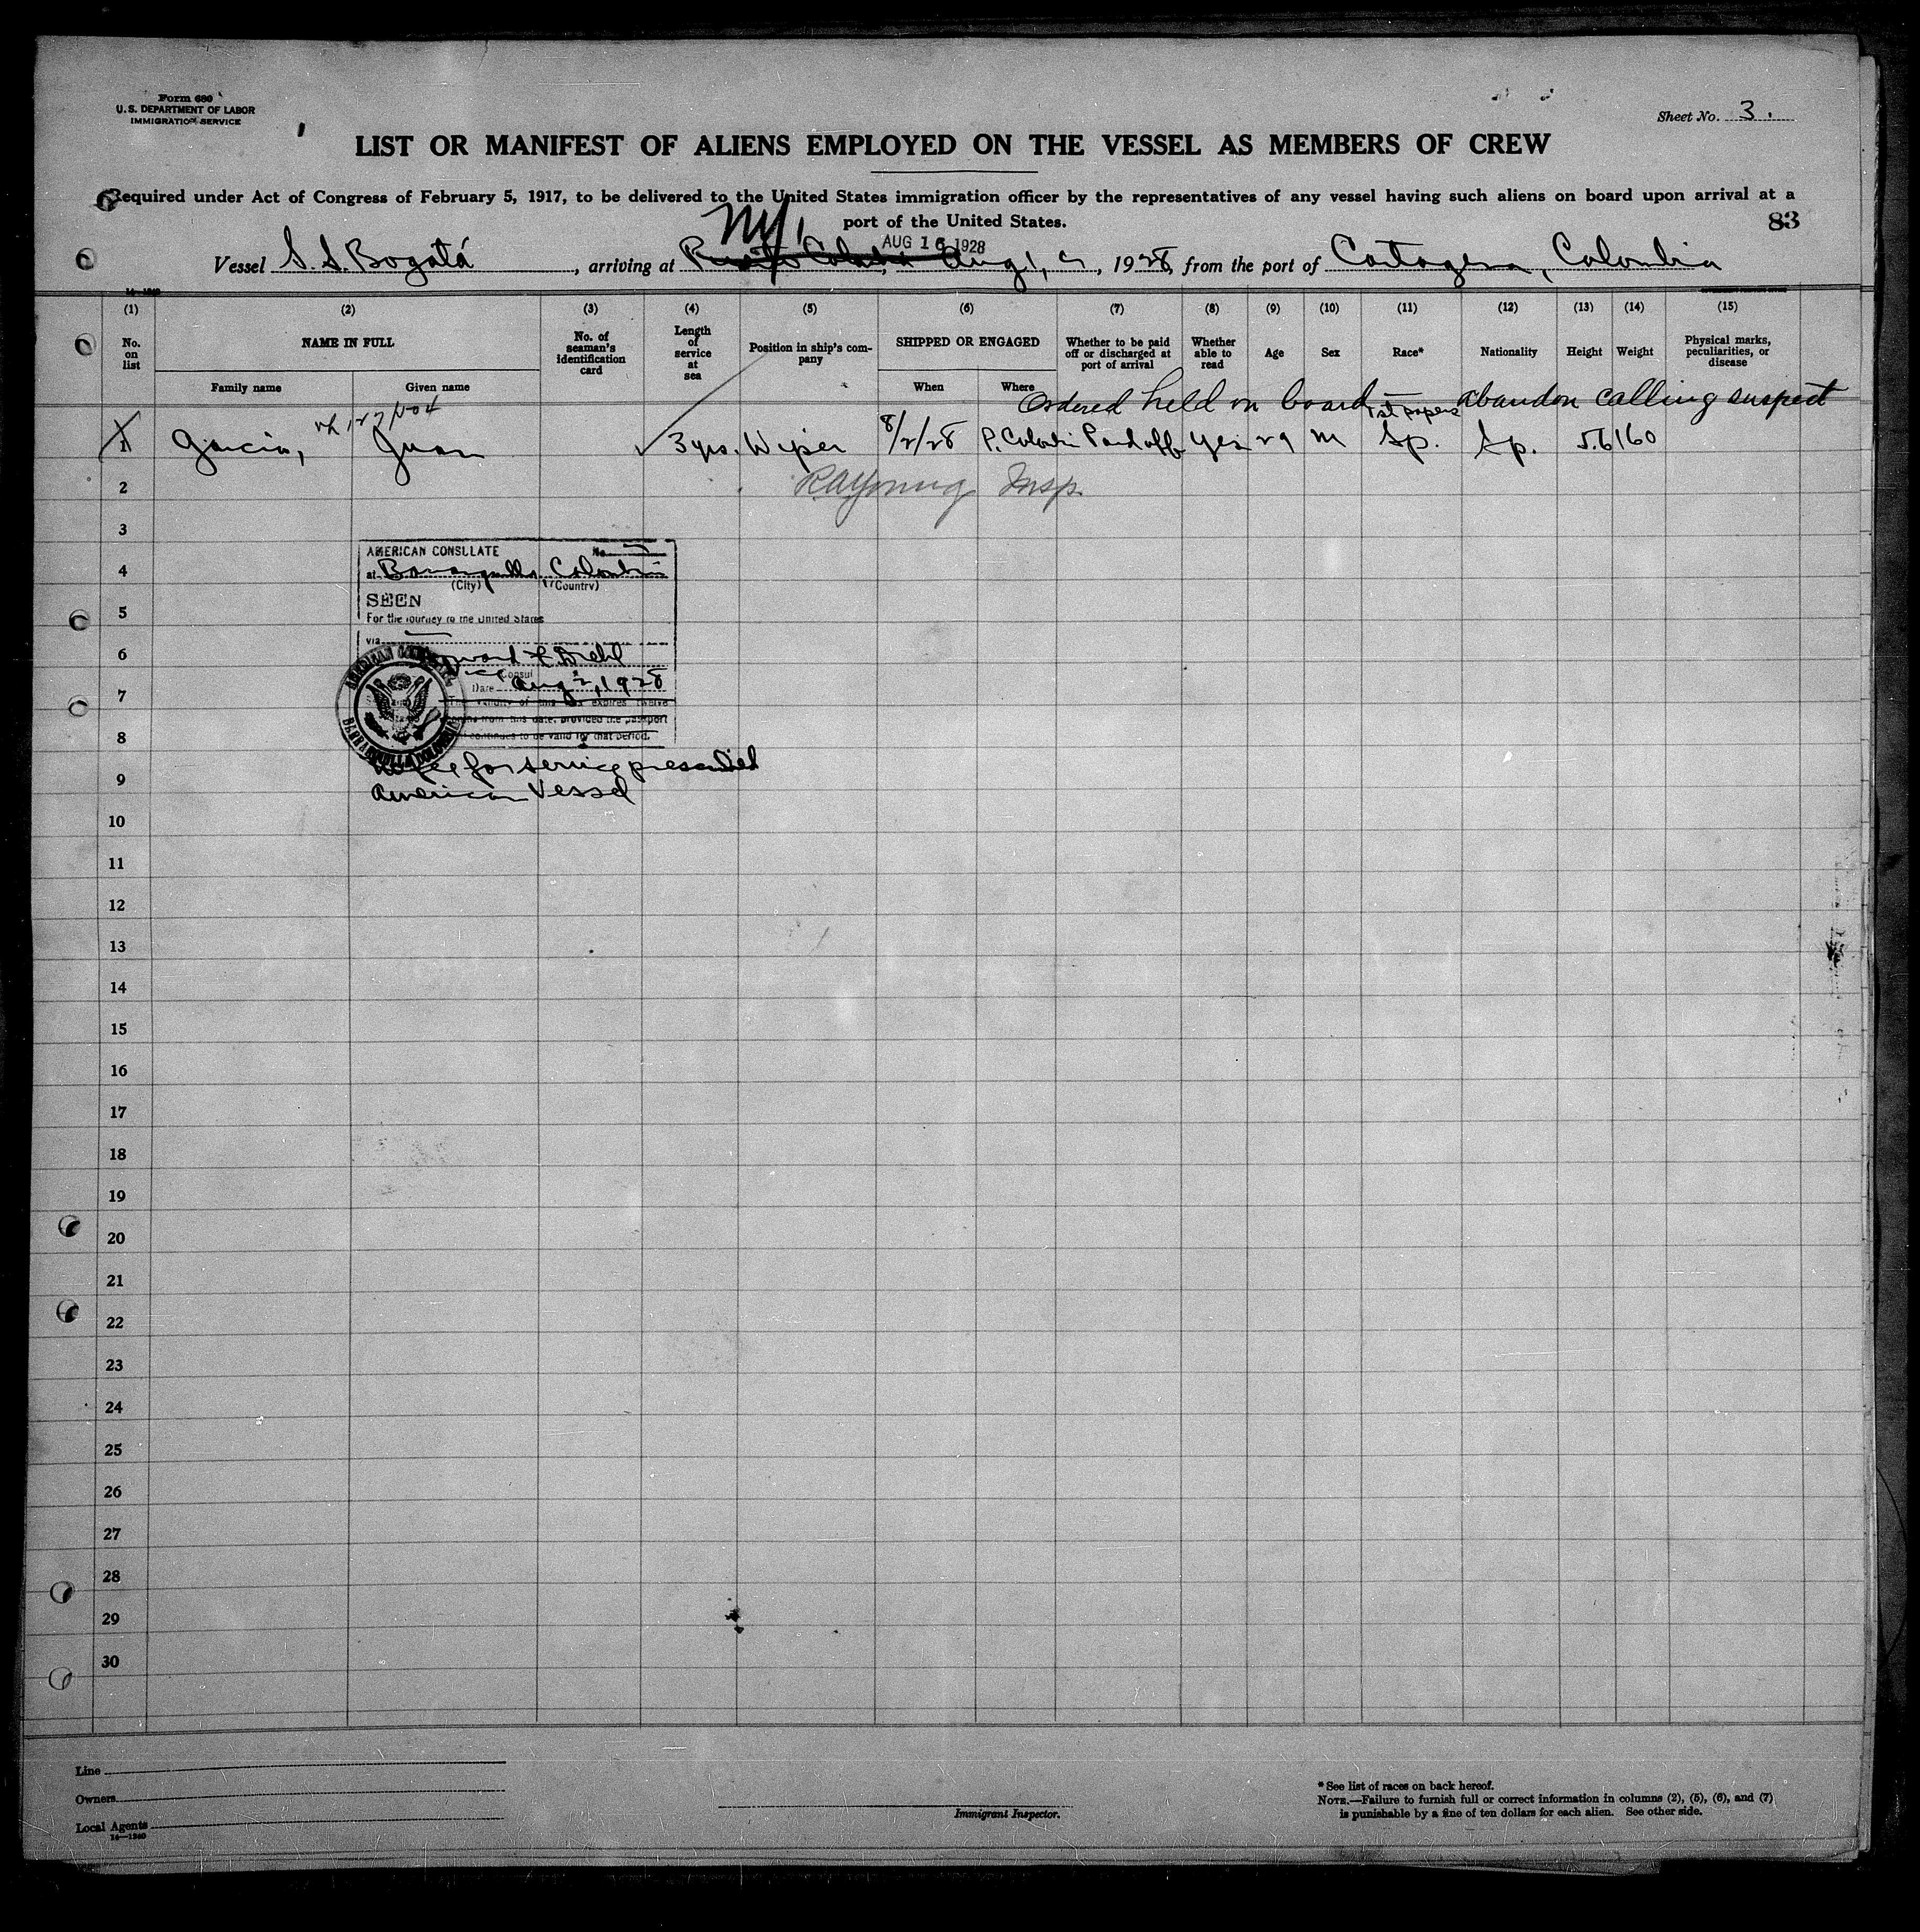 Form 680
U. S. DEPARTMENT OF LABOR
IMMIGRATION SERVICE
Sheet No. 3.
LIST OR MANIFEST OF ALIENS EMPLOYED ON THE VESSEL AS MEMBERS OF CREW
Required under Act of Congress of February 5, 1917, to be delivered to the United States immigration officer by the representatives of any vessel having such aliens on board upon arrival at a
port of the United States.
83
NY,
AUG 16 1928
Vessel S. S. Bogotá, arriving at Puerto Colombia Aug, 1928, from the port of Cartagena, Colombia
14—1240
(1) (2) (3) (4) (5) (6) (7) (8) (9) (10) (11) (12) (13) (14) (15)
No. on list
NAME IN FULL
Family name
Given name
No. of seaman's identification card
Length of service at sea
Position in ship's company
SHIPPED OR ENGAGED
When
Where
Whether to be paid off or discharged at port of arrival
Whether able to read
Age
Sex
Race*
Nationality
Height
Weight
Physical marks, peculiarities, or disease
Ordered held on board 1st papers abandon calling suspect
1 Garcia, Juan 3 yrs. Wiper 8/2/28 P. Colombia Paid off Yes 29 M Sp. Sp. 5.6 160
2 RAYoung Insp.
3
AMERICAN CONSULATE No.
4
at Barranquilla, Colombia
(City) (Country)
SEEN
5
For the journey to the United States
via
6
Consul
Date Aug 2, 1928
7
The validity of this visa expires twelve
months from this date, provided the passport
8
continues to be valid for that period.
AMERICAN CONSULATE
BARRANQUILLA COLOMBIA
No fee for service prescribed
9
American Vessel
10
11
12
13
14
15
16
17
18
19
20
21
22
23
24
25
26
27
28
29
30
Line
Owners
Local Agents
14—1240
Immigrant Inspector.
* See list of races on back hereof.
NOTE.—Failure to furnish full or correct information in columns (2), (5), (6), and (7)
is punishable by a fine of ten dollars for each alien. See other side.